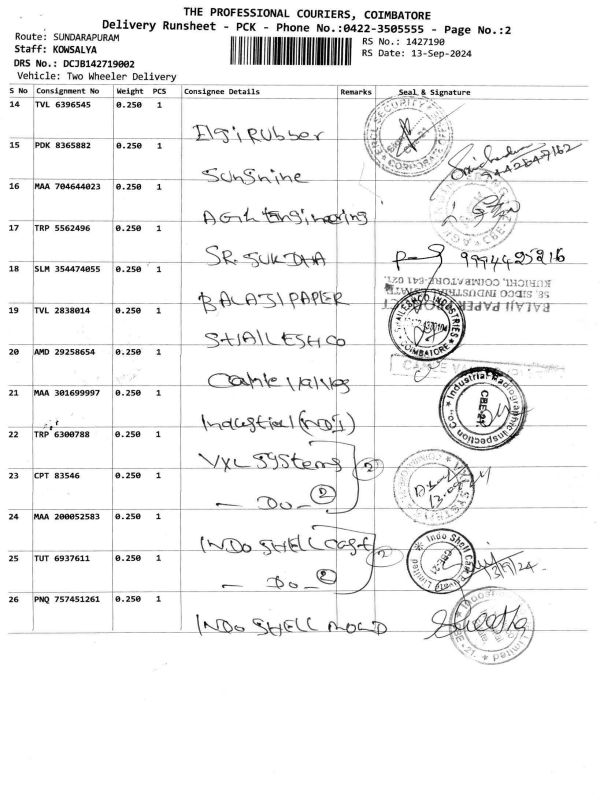 THE PROFESSIONAL COURIERS, COIMBATORE
Delivery Runsheet - PCK - Phone No.:0422-3505555 - Page No.:2
Route: SUNDARAPURAM
RS No.: 1427190
Staff: KOWSALYA
RS Date: 13-Sep-2024
DRS No.: DCJB142719002
Vehicle: Two Wheeler Delivery
S No Consignment No Weight PCS Consignee Details Remarks Seal & Signature
14 TVL 6396545 0.250 1
Elgi Rubber
15 PDK 8365882 0.250 1
Sunshine
16 MAA 704644023 0.250 1
Engineering
17 TRP 5562496 0.250 1
SR. SUKDHA 9994425216
18 SLM 354474055 0.250 1
KURICHI, COIMBATORE-641 021.
58, SIDCO INDUSTRIAL ESTATE
BALAJI PAPER
BALAJI PAPER
19 TVL 2838014 0.250 1
SHAILESH CO
SHAILESHCO INDUSTRIES
COIMBATORE
20 AMD 29258654 0.250 1
21 MAA 301699997 0.250 1
Industrial (NDI)
Industrial Radiographic Inspection Co.,
CBE-21
22 TRP 6300788 0.250 1
VXL Systems 2
23 CPT 83546 0.250 1
- Do - 2
24 MAA 200052583 0.250 1
INDO SHELL Cast 2
Indo Shell Cast Private Limited
CBE-21
25 TUT 6937611 0.250 1
- Do - 2
13/9/24
26 PNQ 757451261 0.250 1
INDO SHELL MOLD